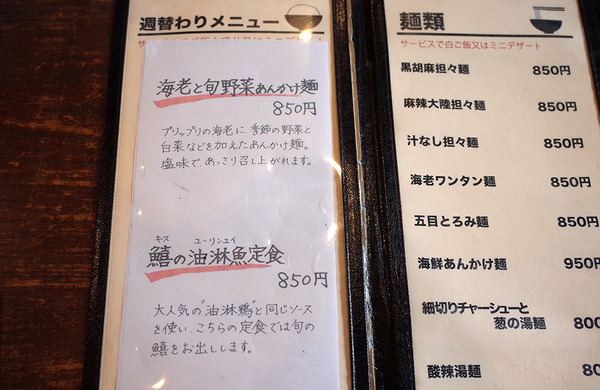 週替わりメニュー
海老と旬野菜あんかけ麺
850円
プリップリの海老に、季節の野菜と
白菜などを加えたあんかけ麺。
塩味で、あっさり召し上がれます。
キス ユーリンユイ
鱚の油淋魚定食
850円
大人気の"油淋鶏"と同じソース
を使い、こちらの定食では旬の
鱚をお出しします。
麺類
サービスで白ご飯又はミニデザート
黒胡麻担々麺 850円
麻辣大陸担々麺 850円
汁なし担々麺 850円
海老ワンタン麺 850円
五目とろみ麺 850円
海鮮あんかけ麺 950円
細切りチャーシューと
葱の湯麺 800
酸辣湯麺 80